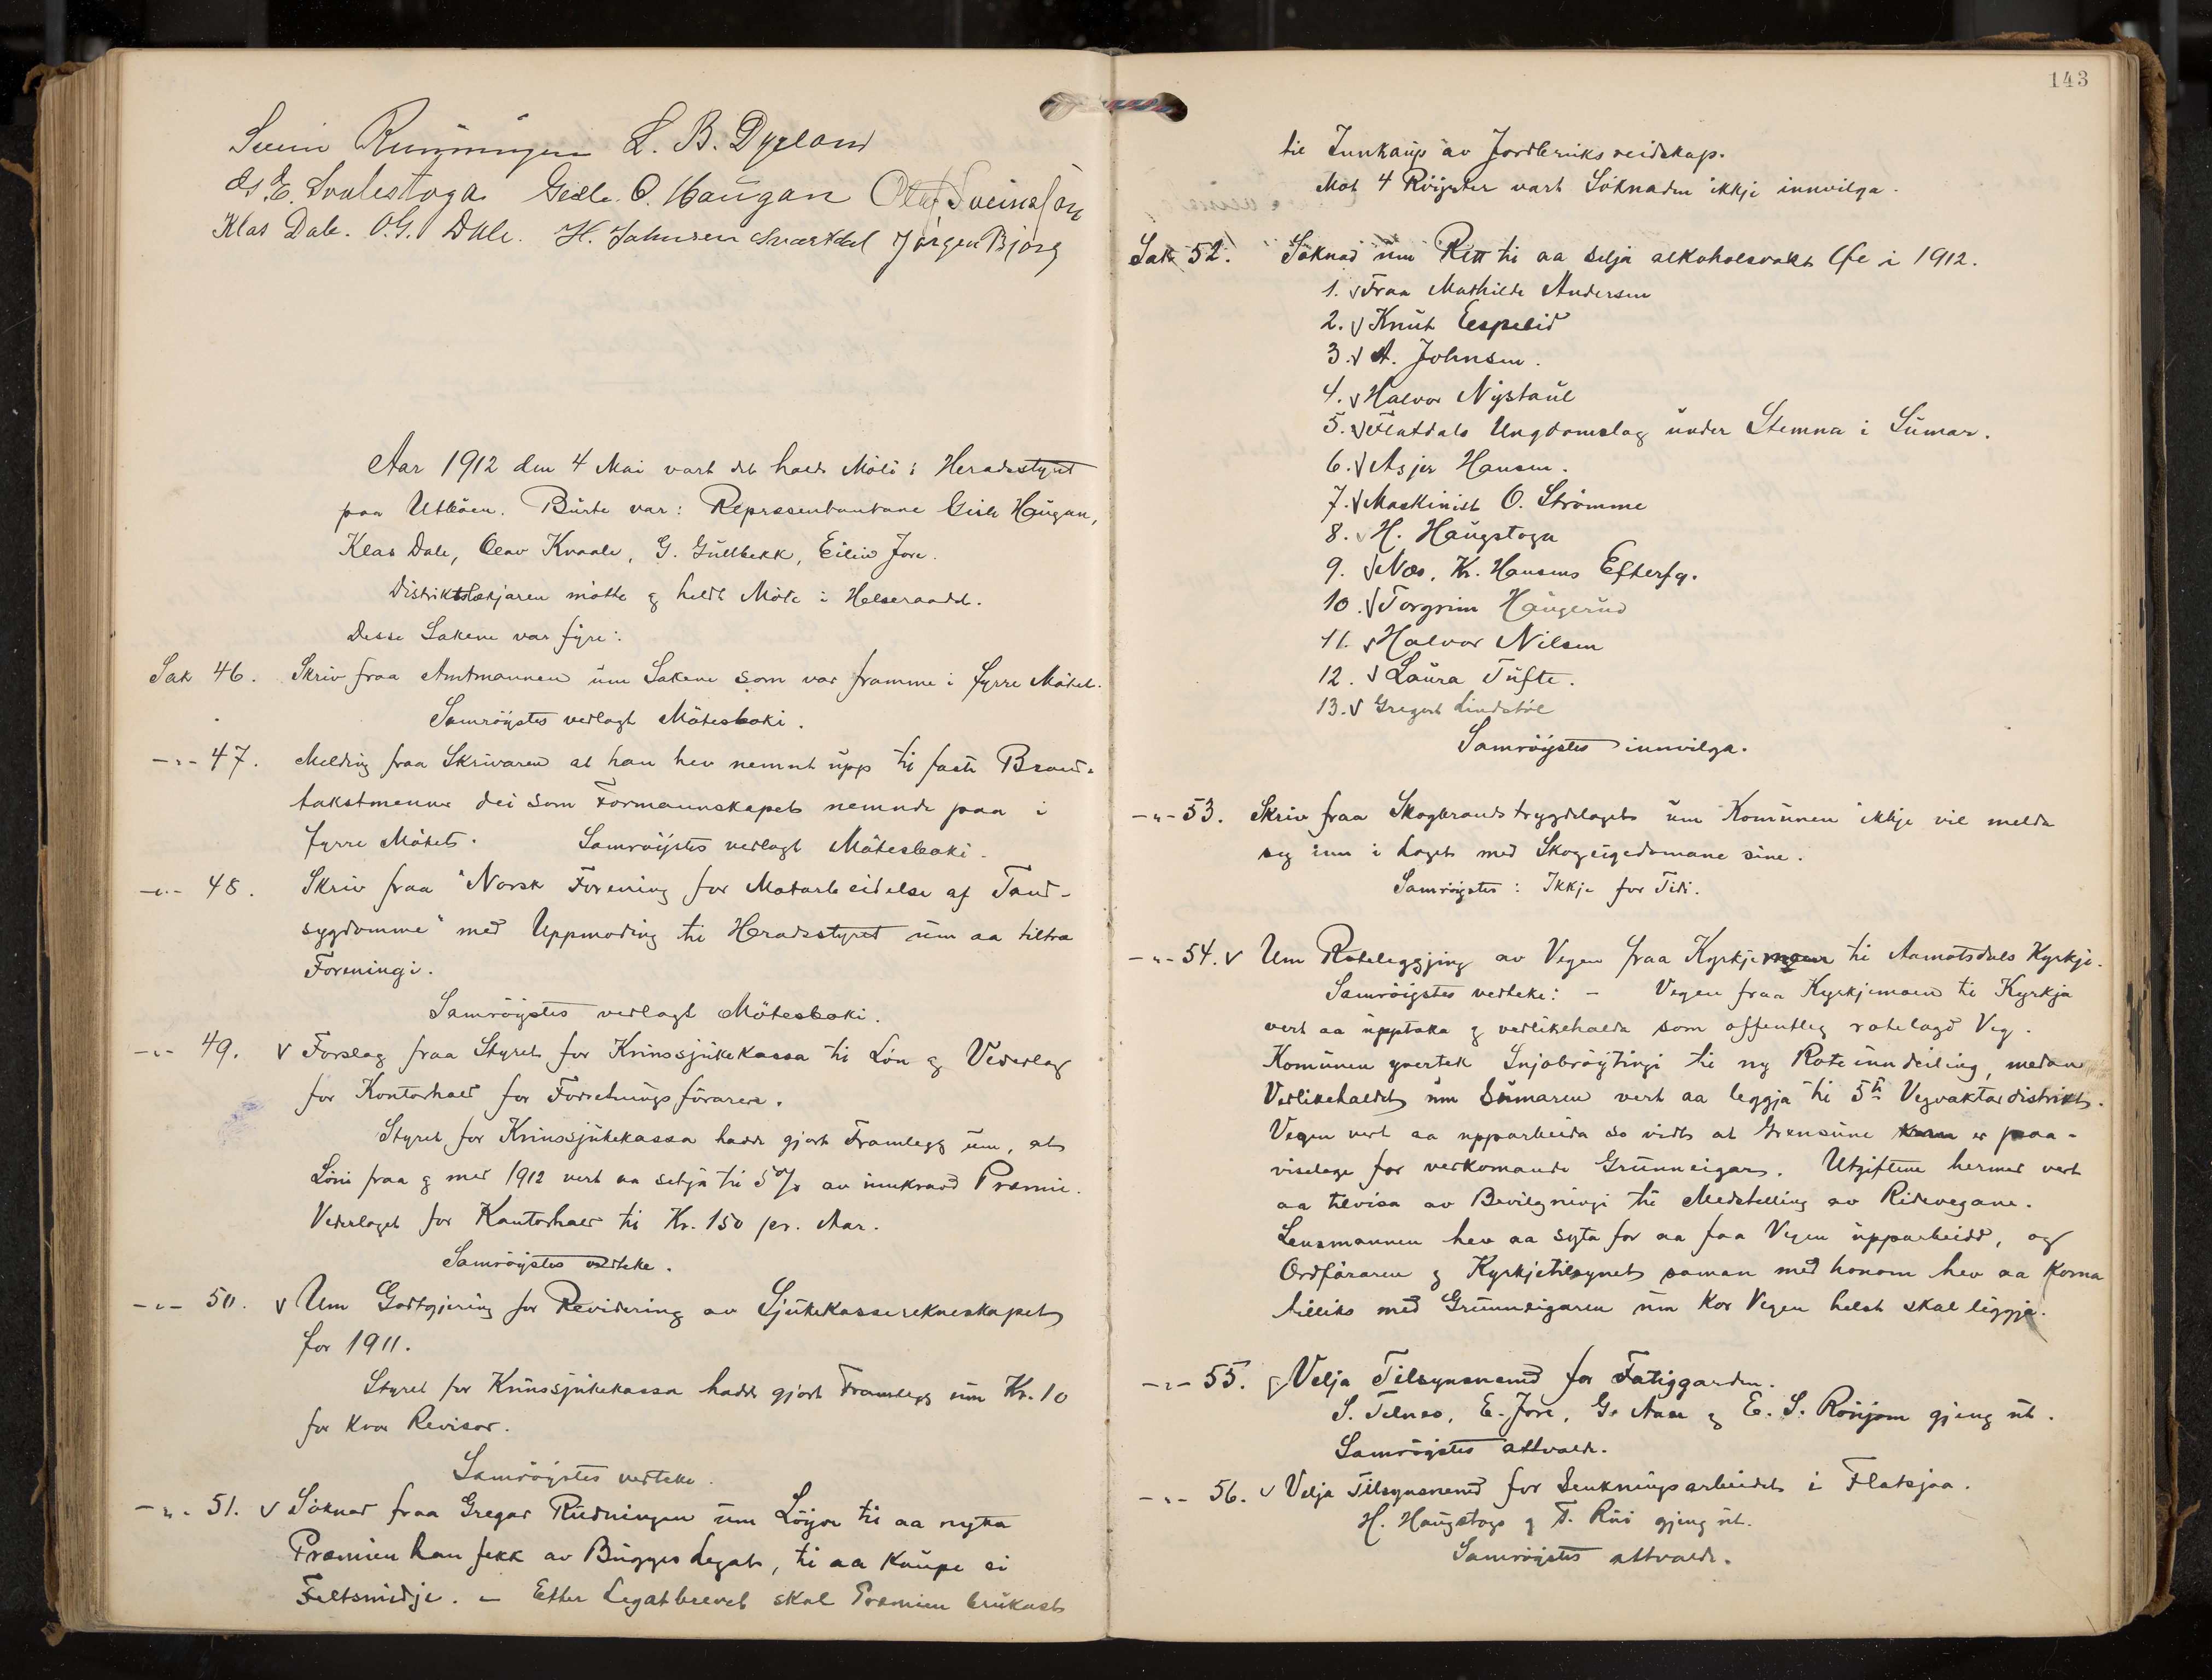 Svein Runningen L. B. Dyrland
Gisle O. Haugan Olaf Sveinsson
Klas Dale. O. G. Dale. H. Johnsen Svartdal Jørgen Bjørg
Aar 1912 den 4 Mai vart det halde Möte i Heradsstyret
paa Utböen. Burte var: Representantane Gisle Haugan,
Klas Dale, Olav Kvaale, G. Gullbekk, Eiliv Jore.
Distriktslækjaren mötte g heldt Möte i Helseraadet.
Desse Sakene var fyre:
Sak 46. Skriv fraa Amtmannen um Sakene som var framme i fyrre Mötet.
Samröystes vedlagt Mötesboki.
-"- 47. Melding fraa Skrivaren at han hev nemnt upp til faste Brand-
takstmenner dei som Formannskapet nemnde paa i
fyrre Mötet. Samröystes vedlagt Mötesboki.
-"- 48. Skriv fraa "Norsk Forening for Motarbeidelse af Tand-
sygdomme" med Uppmoding til Heradsstyret um aa tiltra
Foreningi.
Samröystes vedlagt Mötesboki.
-"- 49. v Forslag fraa Styret for Krinssjukekassa til Lön g Vederlag
for Kontorhald for Forretningsföraren.
Styret for Krinssjukekassa hadde gjort Framlegg um, at
Löni fraa g med 1912 vert aa setja til 5 % av innkravd Premie.
Vederlaget for Kontorhald til Kr. 150 pr. Aar.
Samröystes vedteke.
-"- 50. v Um Godtgjering for Revidering av Sjukekasserekneskapet
for 1911.
Styret for Krinssjukekassa hadde gjort Framlegg um Kr. 10
for kvar Revisor.
Samröystes vedteke.
-"- 51. v Söknad fraa Gregar Rudningen um Löyve til aa nytta
Præmien han fekk av Bugges Legat, til aa kaupe ei
Feltsmidje. - Etter Legatbrevet skal Præmien brukast
143
til Innkaup av Jordbruksreidskap.
Mot 4 Röyster vart Söknaden ikkje innvilga.
Sak 52. Söknad um Rett til aa selja alkoholsvakt Öl i 1912.
1. v Fraa Mathilde Andersen
2. v Knut Espelid
3. v A. Johnsen.
4. v Halvor Nystaul
5. v Flatdals Ungdomslag under Stemna i Sumar.
6. v Asjer Hansen.
7. v Maskinist O. Strömme
8. v H. Haugstoga
9. v Nes. Kr. Hansens Efterfg.
10. v Torgrim Haugerud
11. v Halvor Nilsen
12. v Laura Tufte.
13. v Gregert Lindstöl
Samröystes innvilga.
-"- 53. Skriv fraa Skogbrandstrygdelaget um Komunen ikkje vil melda
seg inn i Laget med Skogeigedomane sine.
Samröystes: Ikkje for Tidi.
-"- 54. v Um Roteleggjing av Vegen fraa Kyrkjemoen til Aamotsdals Kyrkje.
Samröystes vedteke: - Vegen fraa Kyrkjemoen til Kyrkja
vert aa upptaka g vedlikehalda som offentleg rotelagd Veg.
Komunen yvertek Snjobröytingi til ny Roteinndeiling, medan
Vedlikehaldet um Sumaren vert aa leggja til 5te Vegvaktardistrikt.
Vegen vert aa upparbeida so vidt at Grensune er paa-
viselege for vedkomande Grunneigar. Utgiftene hermed vert
aa tilvisa av Bevilgningi til Medstelling av Ridevegane.
Lensmannen hev aa syta for aa faa Vegen upparbeidd, og
Ordföraren g Kyrkjetilsynet saman med honom hev aa koma
tilliks med Grunneigaren um kor Vegen helst skal liggja.
-"- 55. Velja Tilsynsnemd for Fatiggarden.
S. Telnes, E. Jore, G. Aase g E. S. Röyjom gjeng ut.
Samröystes attvalde.
-"- 56. v Velja Tilsynsnemd for Senkningsarbeidet i Flatsjaa.
H. Haugstoga g T. Rui gjeng ut.
Samröystes attvalde.